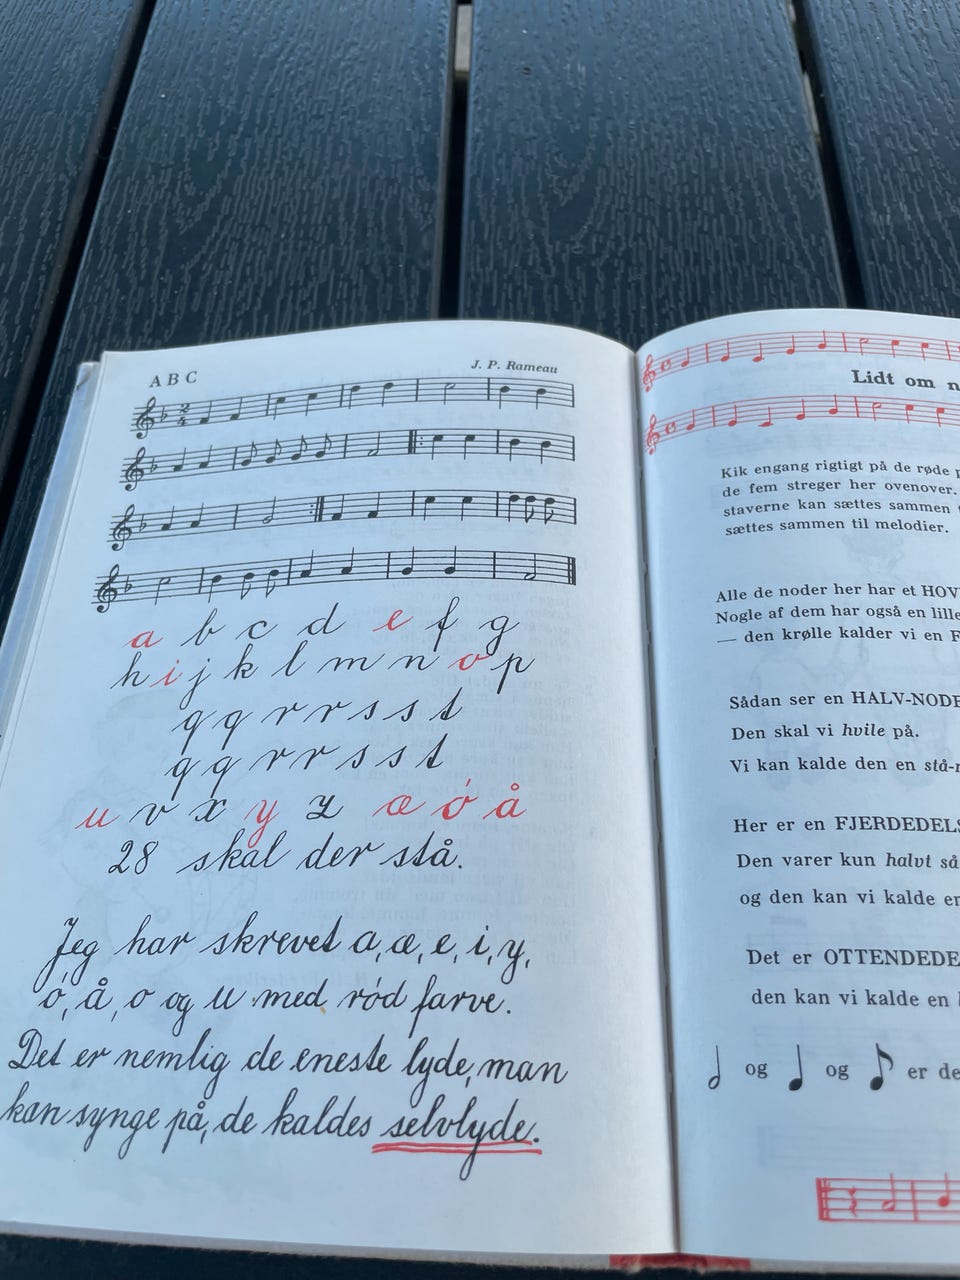 A B C
J. P. Rameau
2
4
a b c d e f g
h i j k l m n o p
q q r r s s t
q q r r s s t
u v x y z æ ø å
28 skal der stå.
Jeg har skrevet a, æ, e, i, y,
ø, å, o og u med rød farve.
Det er nemlig de eneste lyde, man
kan synge på, de kaldes selvlyde.
Lidt om
Kik engang rigtigt på de røde
de fem streger her ovenover.
staverne kan sættes sammen
sættes sammen til melodier.
Alle de noder her har et
Nogle af dem har også en lille
— den krølle kalder vi en
Sådan ser en HALV-NODE
Den skal vi hvile på.
Vi kan kalde den en
Her er en
Den varer kun halvt så
og den kan vi kalde
Det er
den kan vi kalde en
og og er